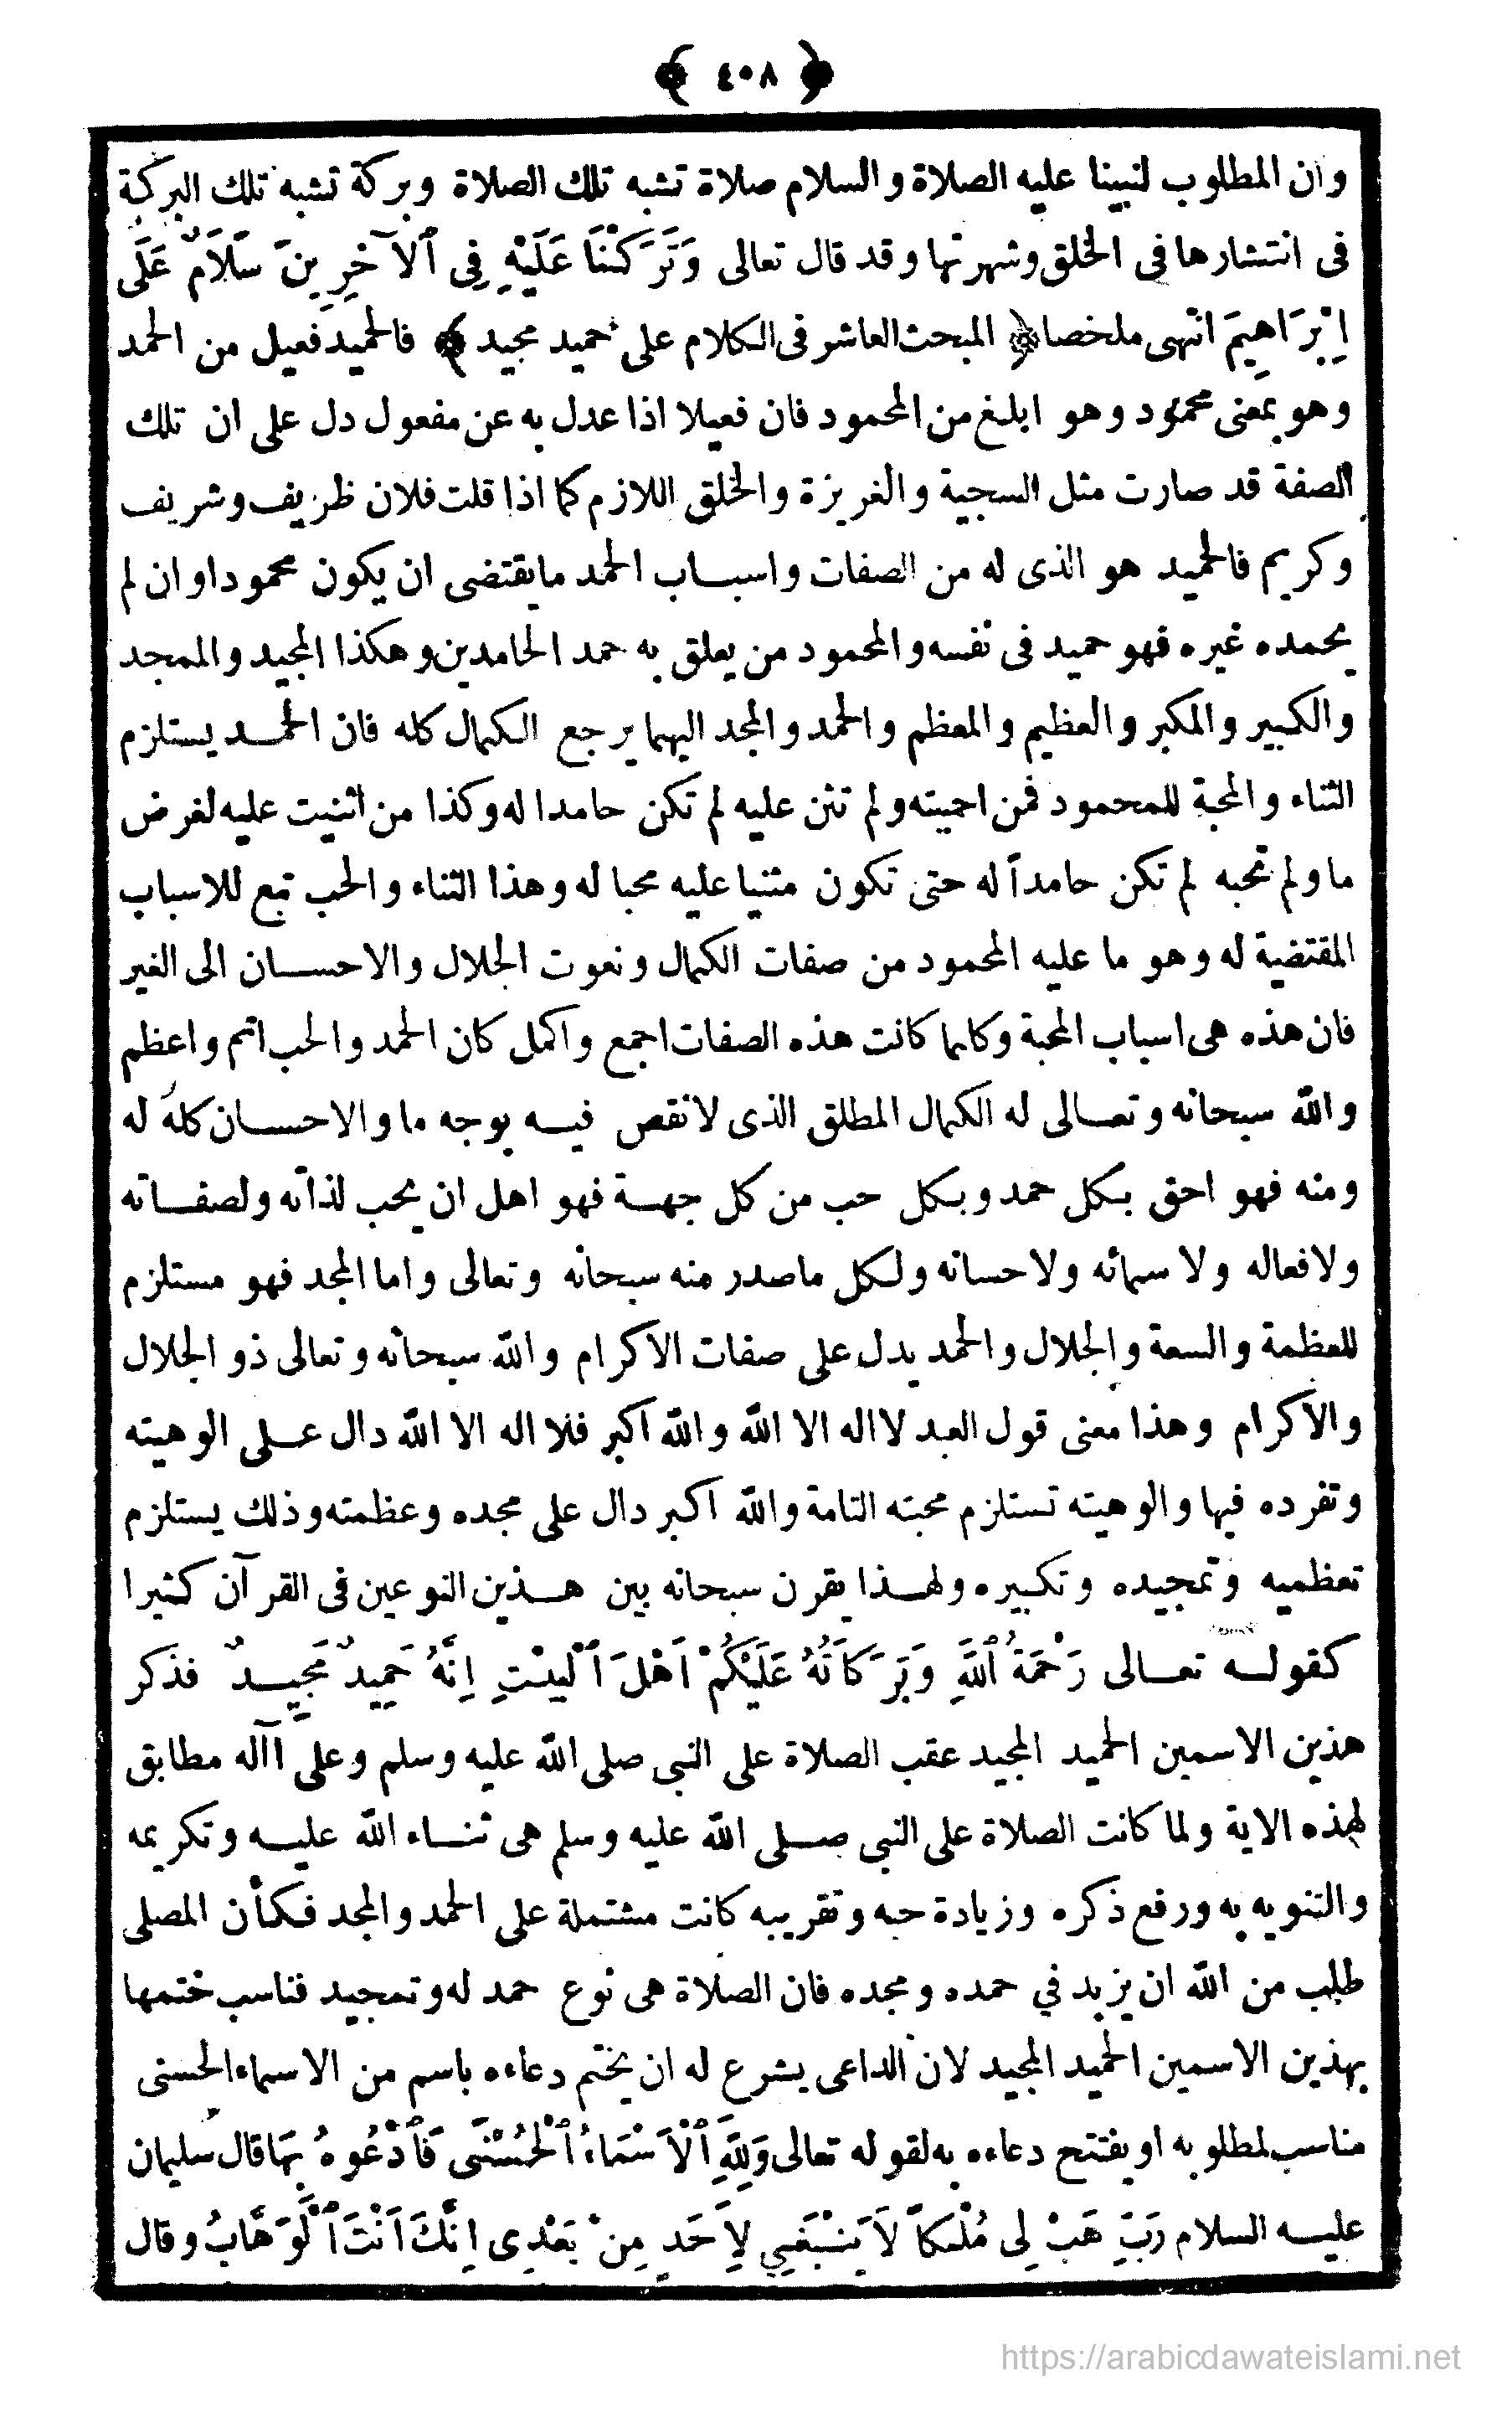 ﴿ ٤٠٨ ﴾
وان المطلوب لنبينا عليه الصلاة والسلام صلاة تشبه تلك الصلاة وبركة تشبه تلك البركة
فى انتشارها فى الخلق وشهرتها وقد قال تعالى وَتَرَكْنَا عَلَيْهِ فِى ٱلْآخِرِينَ سَلَامٌ عَلَى
اِبْرَاهِيمَ انتهى ملخصا ﴿ المبحث العاشر فى الكلام على حميد مجيد ﴾ فالحميد فعيل من الحمد
وهو بمعنى محمود وهو ابلغ من المحمود فان فعيلا اذا عدل به عن مفعول دل على ان تلك
الصفة قد صارت مثل السجية والغريزة والخلق اللازم كما اذا قلت فلان ظريف وشريف
وكريم فالحميد هو الذى له من الصفات واسباب الحمد ما يقتضى ان يكون محمودا وان لم
يحمده غيره فهو حميد فى نفسه والمحمود من يعلق به حمد الحامدين وهكذا المجيد والممجد
والكبير والمكبر والعظيم والمعظم والحمد والمجد اليهما يرجع الكمال كله فان الحمد يستلزم
الثناء والمحبة للمحمود فمن احببته ولم تثن عليه لم تكن حامدا له وكذا من اثنيت عليه لغرض
ما ولم تحبه لم تكن حامداً له حتى تكون مثنيا عليه محبا له وهذا الثناء والحب تبع للاسباب
المقتضية له وهو ما عليه المحمود من صفات الكمال ونعوت الجلال والاحسان الى الغير
فان هذه هى اسباب المحبة وكلما كانت هذه الصفات اجمع واكمل كان الحمد والحب اتم واعظم
والله سبحانه وتعالى له الكمال المطلق الذى لانقص فيه بوجه ما والاحسان كله له
ومنه فهو احق بكل حمد وبكل حب من كل جهة فهو اهل ان يحب لذاته ولصفاته
ولافعاله ولاسمائه ولاحسانه ولكل ماصدر منه سبحانه وتعالى واما المجد فهو مستلزم
للعظمة والسعة والجلال والحمد يدل على صفات الاكرام والله سبحانه وتعالى ذو الجلال
والاكرام وهذا معنى قول العبد لااله الا الله والله اكبر فلا اله الا الله دال على الوهيته
وتفرده فيها والوهيته تستلزم محبته التامة والله اكبر دال على مجده وعظمته وذلك يستلزم
تعظميه وتمجيده وتكبيره ولهذا يقرن سبحانه بين هذين النوعين فى القرآن كثيرا
كقوله تعالى رَحْمَةُ ٱللهِ وَبَرَكَاتُهُ عَلَيْكُمْ اَهْلَ ٱلْبَيْتِ اِنَّهُ حَمِيدٌ مَجِيدٌ فذكر
هذين الاسمين الحميد المجيد عقب الصلاة على النبى صلى الله عليه وسلم وعلى اآله مطابق
لهذه الاية ولما كانت الصلاة على النبى صلى الله عليه وسلم هى ثناء الله عليه وتكريمه
والتنويه به ورفع ذكره وزيادة حبه وتقريبه كانت مشتملة على الحمد والمجد فكأن المصلى
طلب من الله ان يزيد في حمده ومجده فان الصلاة هى نوع حمد له وتمجيد فناسب ختمها
بهذين الاسمين الحميد المجيد لان الداعى يشرع له ان يختم دعاءه باسم من الاسماء الحسنى
مناسب لمطلوبه او يفتتح دعاءه به لقوله تعالى وَلِلهِ ٱلْاَسْمَاءُ ٱلْحُسْنَى فَٱدْعُوهُ بِهَا قال سليمان
عليه السلام رَبِّ هَبْ لِى مُلْكاً لَا يَنْبَغِي لِاَحَدٍ مِنْ بَعْدِى اِنَّكَ اَنْتَ ٱلْوَهَّابُ وقال
https://arabicdawateislami.net